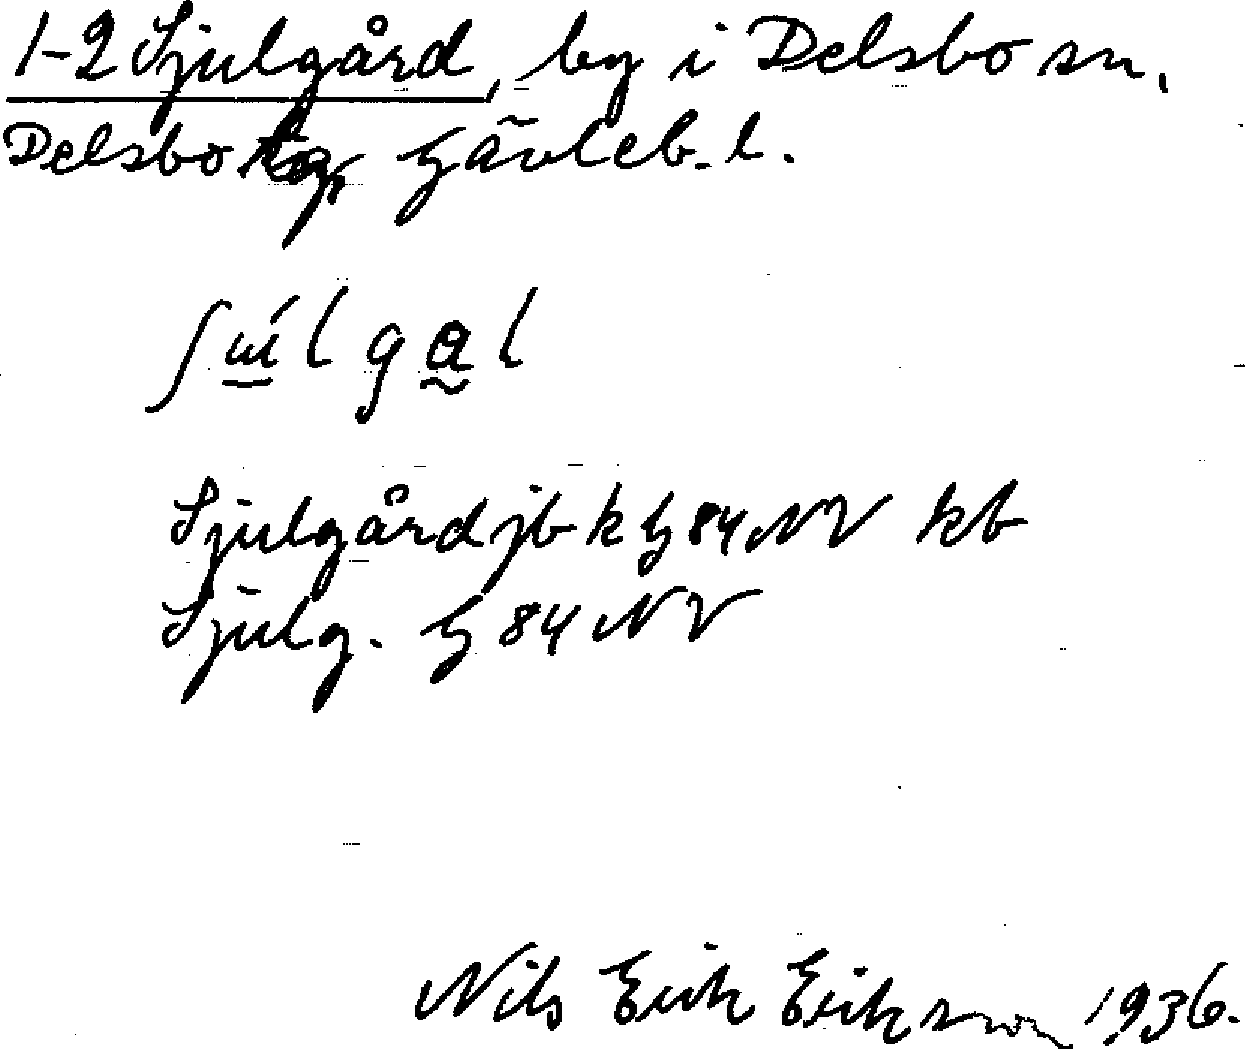 1-2 Sjulgård, by i Delsbo sn.
Delsbo tg, Gävleb. l.
Sjulgård jb k G 84 NV kb
Sjulg. G 84 NV
Nils Erik Eriksson 1936.